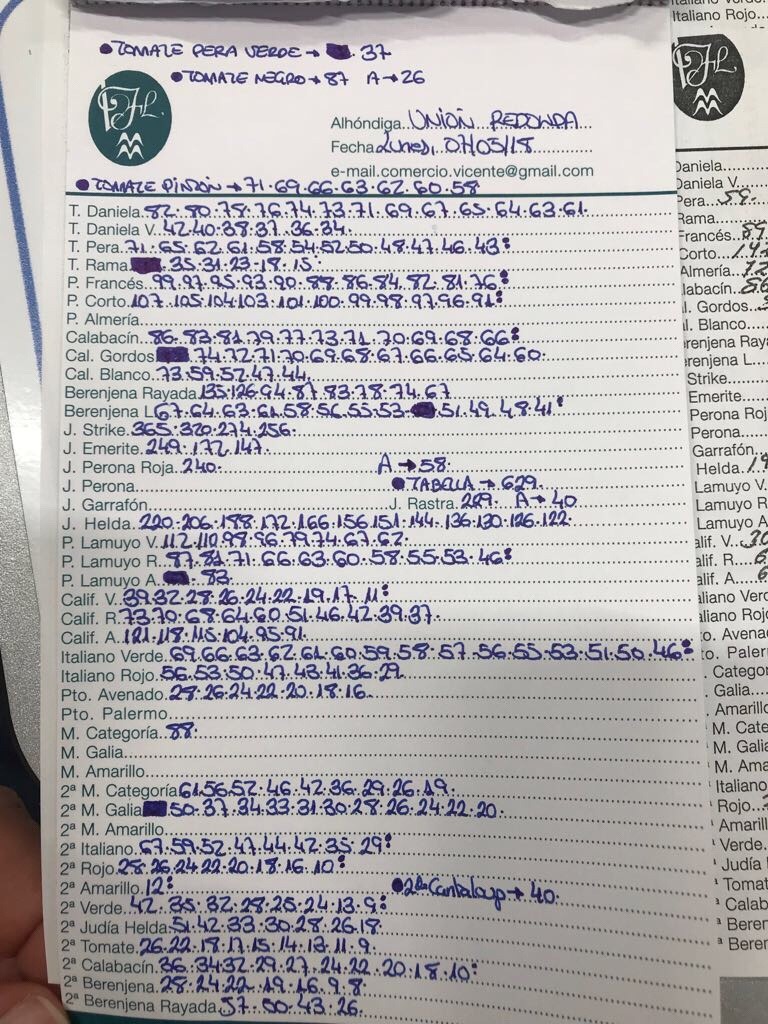 • TOMATE PERA VERDE → 37
• TOMATE NEGRO → 87 A → 26
FHL
Alhóndiga UNIÓN REDONDA
Fecha Lunes, 07/05/18
e-mail.comercio.vicente@gmail.com
• TOMATE PINTÓN → 71·69·66·63·62·60·58
T. Daniela 82·80·78·76·74·73·71·69·67·65·64·63·61
T. Daniela V. 42·40·38·37·36·34
T. Pera 71·65·62·61·58·54·52·50·48·47·46·43:
T. Rama 35·31·23·18·15
P. Francés 99·97·95·93·90·88·86·84·82·81·76:
P. Corto 107·105·104·103·101·100·99·98·97·96·91:
P. Almería
Calabacín 86·83·81·79·77·73·71·70·69·68·66:
Cal. Gordos 74·72·71·70·69·68·67·66·65·64·60
Cal. Blanco 73·59·52·47·44
Berenjena Rayada 135·126·94·87·83·78·74·67
Berenjena L 67·64·63·61·58·56·55·53·51·49·48·41:
J. Strike 365·320·274·256
J. Emerite 249·172·147
J. Perona Roja 240 A → 58
J. Perona • TABELLA → 629
J. Garrafón J. Rastra 209 A → 40
J. Helda 220·206·188·172·166·156·151·144·136·130·126·122
P. Lamuyo V. 112·110·98·96·79·74·67·62
P. Lamuyo R. 87·81·71·66·63·60·58·55·53·46:
P. Lamuyo A. 83
Calif. V. 39·32·28·26·24·22·19·17·11:
Calif. R. 73·70·68·64·60·51·46·42·39·37
Calif. A. 121·118·115·104·95·91
Italiano Verde 69·66·63·62·61·60·59·58·57·56·55·53·51·50·46:
Italiano Rojo 56·53·50·47·43·41·36·29
Pto. Avenado 28·26·24·22·20·18·16
Pto. Palermo
M. Categoría 88
M. Galia
M. Amarillo
2ª M. Categoría 61·56·52·46·42·36·29·26·19
2ª M. Galia 50·37·34·33·31·30·28·26·24·22·20
2ª M. Amarillo
2ª Italiano 67·59·52·47·44·42·35·29:
2ª Rojo 28·26·24·22·20·18·16·10:
2ª Amarillo 12: • 2ª Cantaloup → 40
2ª Verde 42·35·32·28·25·24·13·9:
2ª Judía Helda 51·42·33·30·28·26·18
2ª Tomate 26·22·18·17·15·14·13·11·9
2ª Calabacín 36·34·32·29·27·24·22·20·18·10:
2ª Berenjena 28·24·22·19·16·9·8
2ª Berenjena Rayada 57·50·43·26
Italiano Rojo
FHL
Daniela
Daniela V.
Pera 58
Rama
Francés
Corto
Almería
labacín
l. Gordos
l. Blanco
erenjena Ray
erenjena L
Strike
Emerite
Perona Roj
Perona
Garrafón
Helda
Lamuyo V
Lamuyo R
Lamuyo A
alif. V.
alif. R.
alif. A.
aliano Verd
aliano Rojo
o. Avenad
to. Palerm
. Categor
. Galia
. Amarillo
M. Cate
M. Galia
M. Ama
Italiano
Rojo
Amarill
Verde
Judía H
Tomat
Calab
Beren
Beren